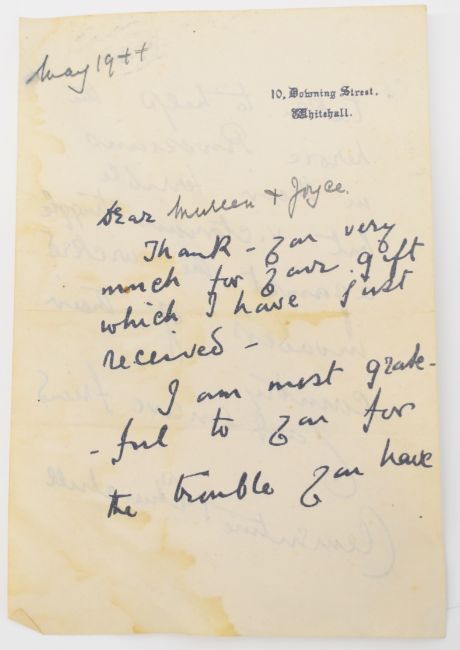 May 1944
10, Downing Street,
Whitehall.
Dear Mureen + Joyce.
Thank - you very
much for your gift
which I have just
received -
I am most grate-
- ful to you for
the trouble you have